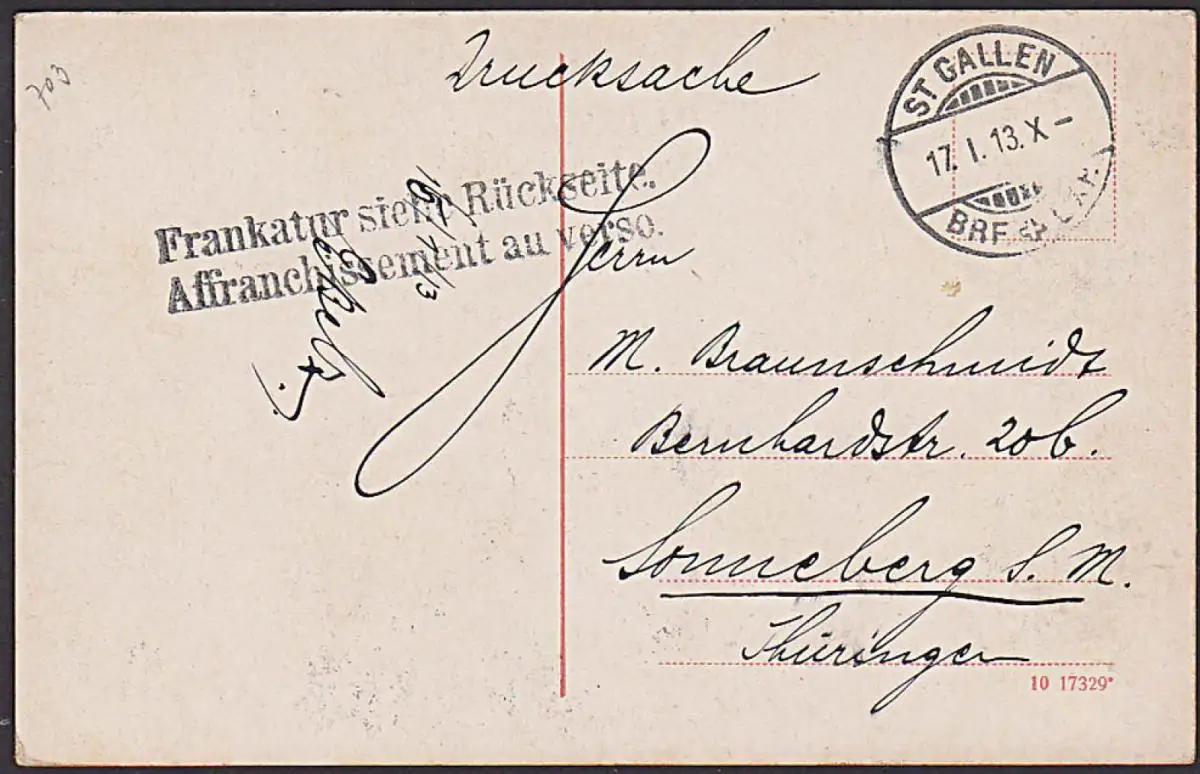 703
Drucksache
ST. GALLEN
17. I. 13. X –
Frankatur siehe Rückseite.
Affranchissement au verso.
Herrn
M. Braunschmidt
Bernhardstr. 20b.
Sonneberg S. M.
Thüringen
10 17329*